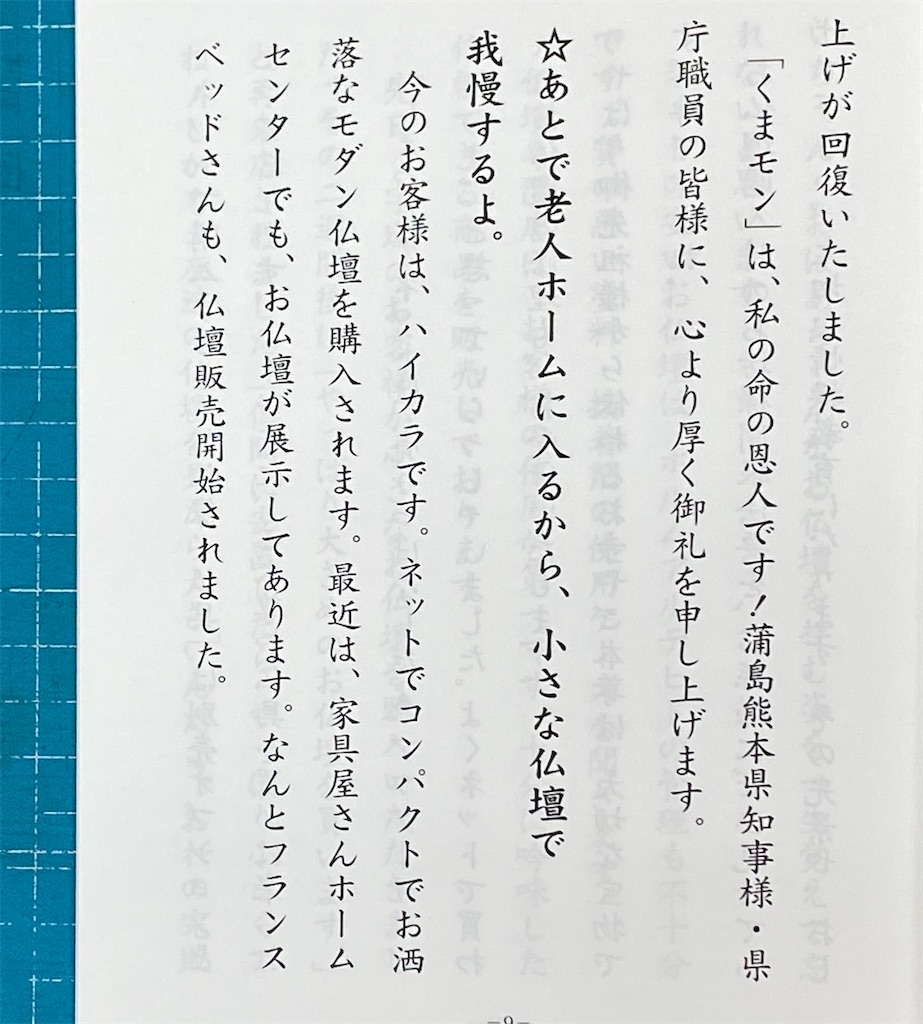 上げが回復いたしました。
「くまモン」は、私の命の恩人です！蒲島熊本県知事様・県
庁職員の皆様に、心より厚く御礼を申し上げます。
☆あとで老人ホームに入るから、小さな仏壇で
我慢するよ。
今のお客様は、ハイカラです。ネットでコンパクトでお洒
落なモダン仏壇を購入されます。最近は、家具屋さんホーム
センターでも、お仏壇が展示してあります。なんとフランス
ベッドさんも、仏壇販売開始されました。
－9－